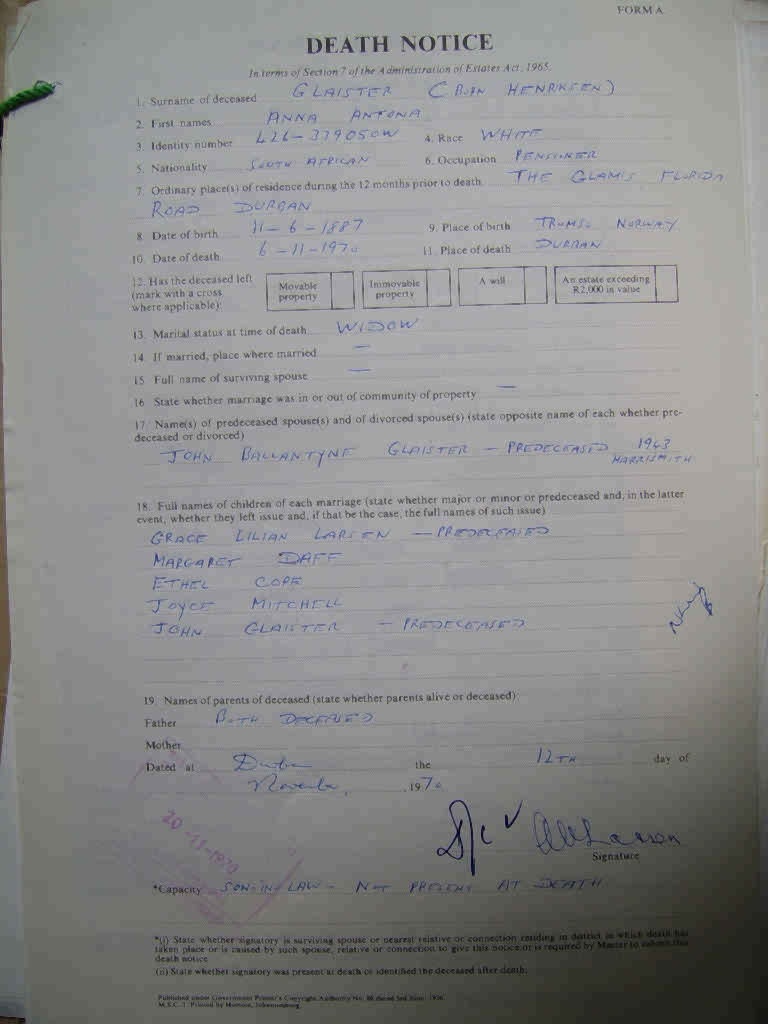 FORM A
DEATH NOTICE
In terms of Section 7 of the Administration of Estates Act, 1965.
1. Surname of deceased GLAISTER (BORN HENRIKSEN)
2. First names ANNA ANTONA
3. Identity number 426-339050W 4. Race WHITE
5. Nationality SOUTH AFRICAN 6. Occupation PENSIONER
7. Ordinary place(s) of residence during the 12 months prior to death. THE GLAMIS FLORIDA
ROAD DURBAN
8. Date of birth 11-6-1887 9. Place of birth TROMSO NORWAY
10. Date of death 6-11-1970 11. Place of death DURBAN
12. Has the deceased left
(mark with a cross
where applicable):
Movable property
Immovable property
A will
An estate exceeding R2,000 in value
13. Marital status at time of death WIDOW
14. If married, place where married —
15. Full name of surviving spouse —
16. State whether marriage was in or out of community of property —
17. Name(s) of predeceased spouse(s) and of divorced spouse(s) (state opposite name of each whether pre-
deceased or divorced)
JOHN BALLANTYNE GLAISTER — PREDECEASED 1943
HARRISMITH
18. Full names of children of each marriage (state whether major or minor or predeceased and, in the latter
event, whether they left issue and, if that be the case, the full names of such issue)
GRACE LILIAN LARSEN — PREDECEASED
MARGARET DAFF
ETHEL COPE
JOYCE MITCHELL
JOHN GLAISTER — PREDECEASED
19. Names of parents of deceased (state whether parents alive or deceased)
Father BOTH DECEASED
Mother
Dated at Durban the 12TH day of
November, 1970
20-11-1970
Signature
*Capacity SON-IN-LAW - NOT PRESENT AT DEATH
*(i) State whether signatory is surviving spouse or nearest relative or connection residing in district in which death has
taken place or is caused by such spouse, relative or connection to give this notice or is required by Master to submit this
death notice.
(ii) State whether signatory was present at death or identified the deceased after death.
Published under Government Printer's Copyright Authority No.
M.S.C. 1. Printed by Hortors, Johannesburg.